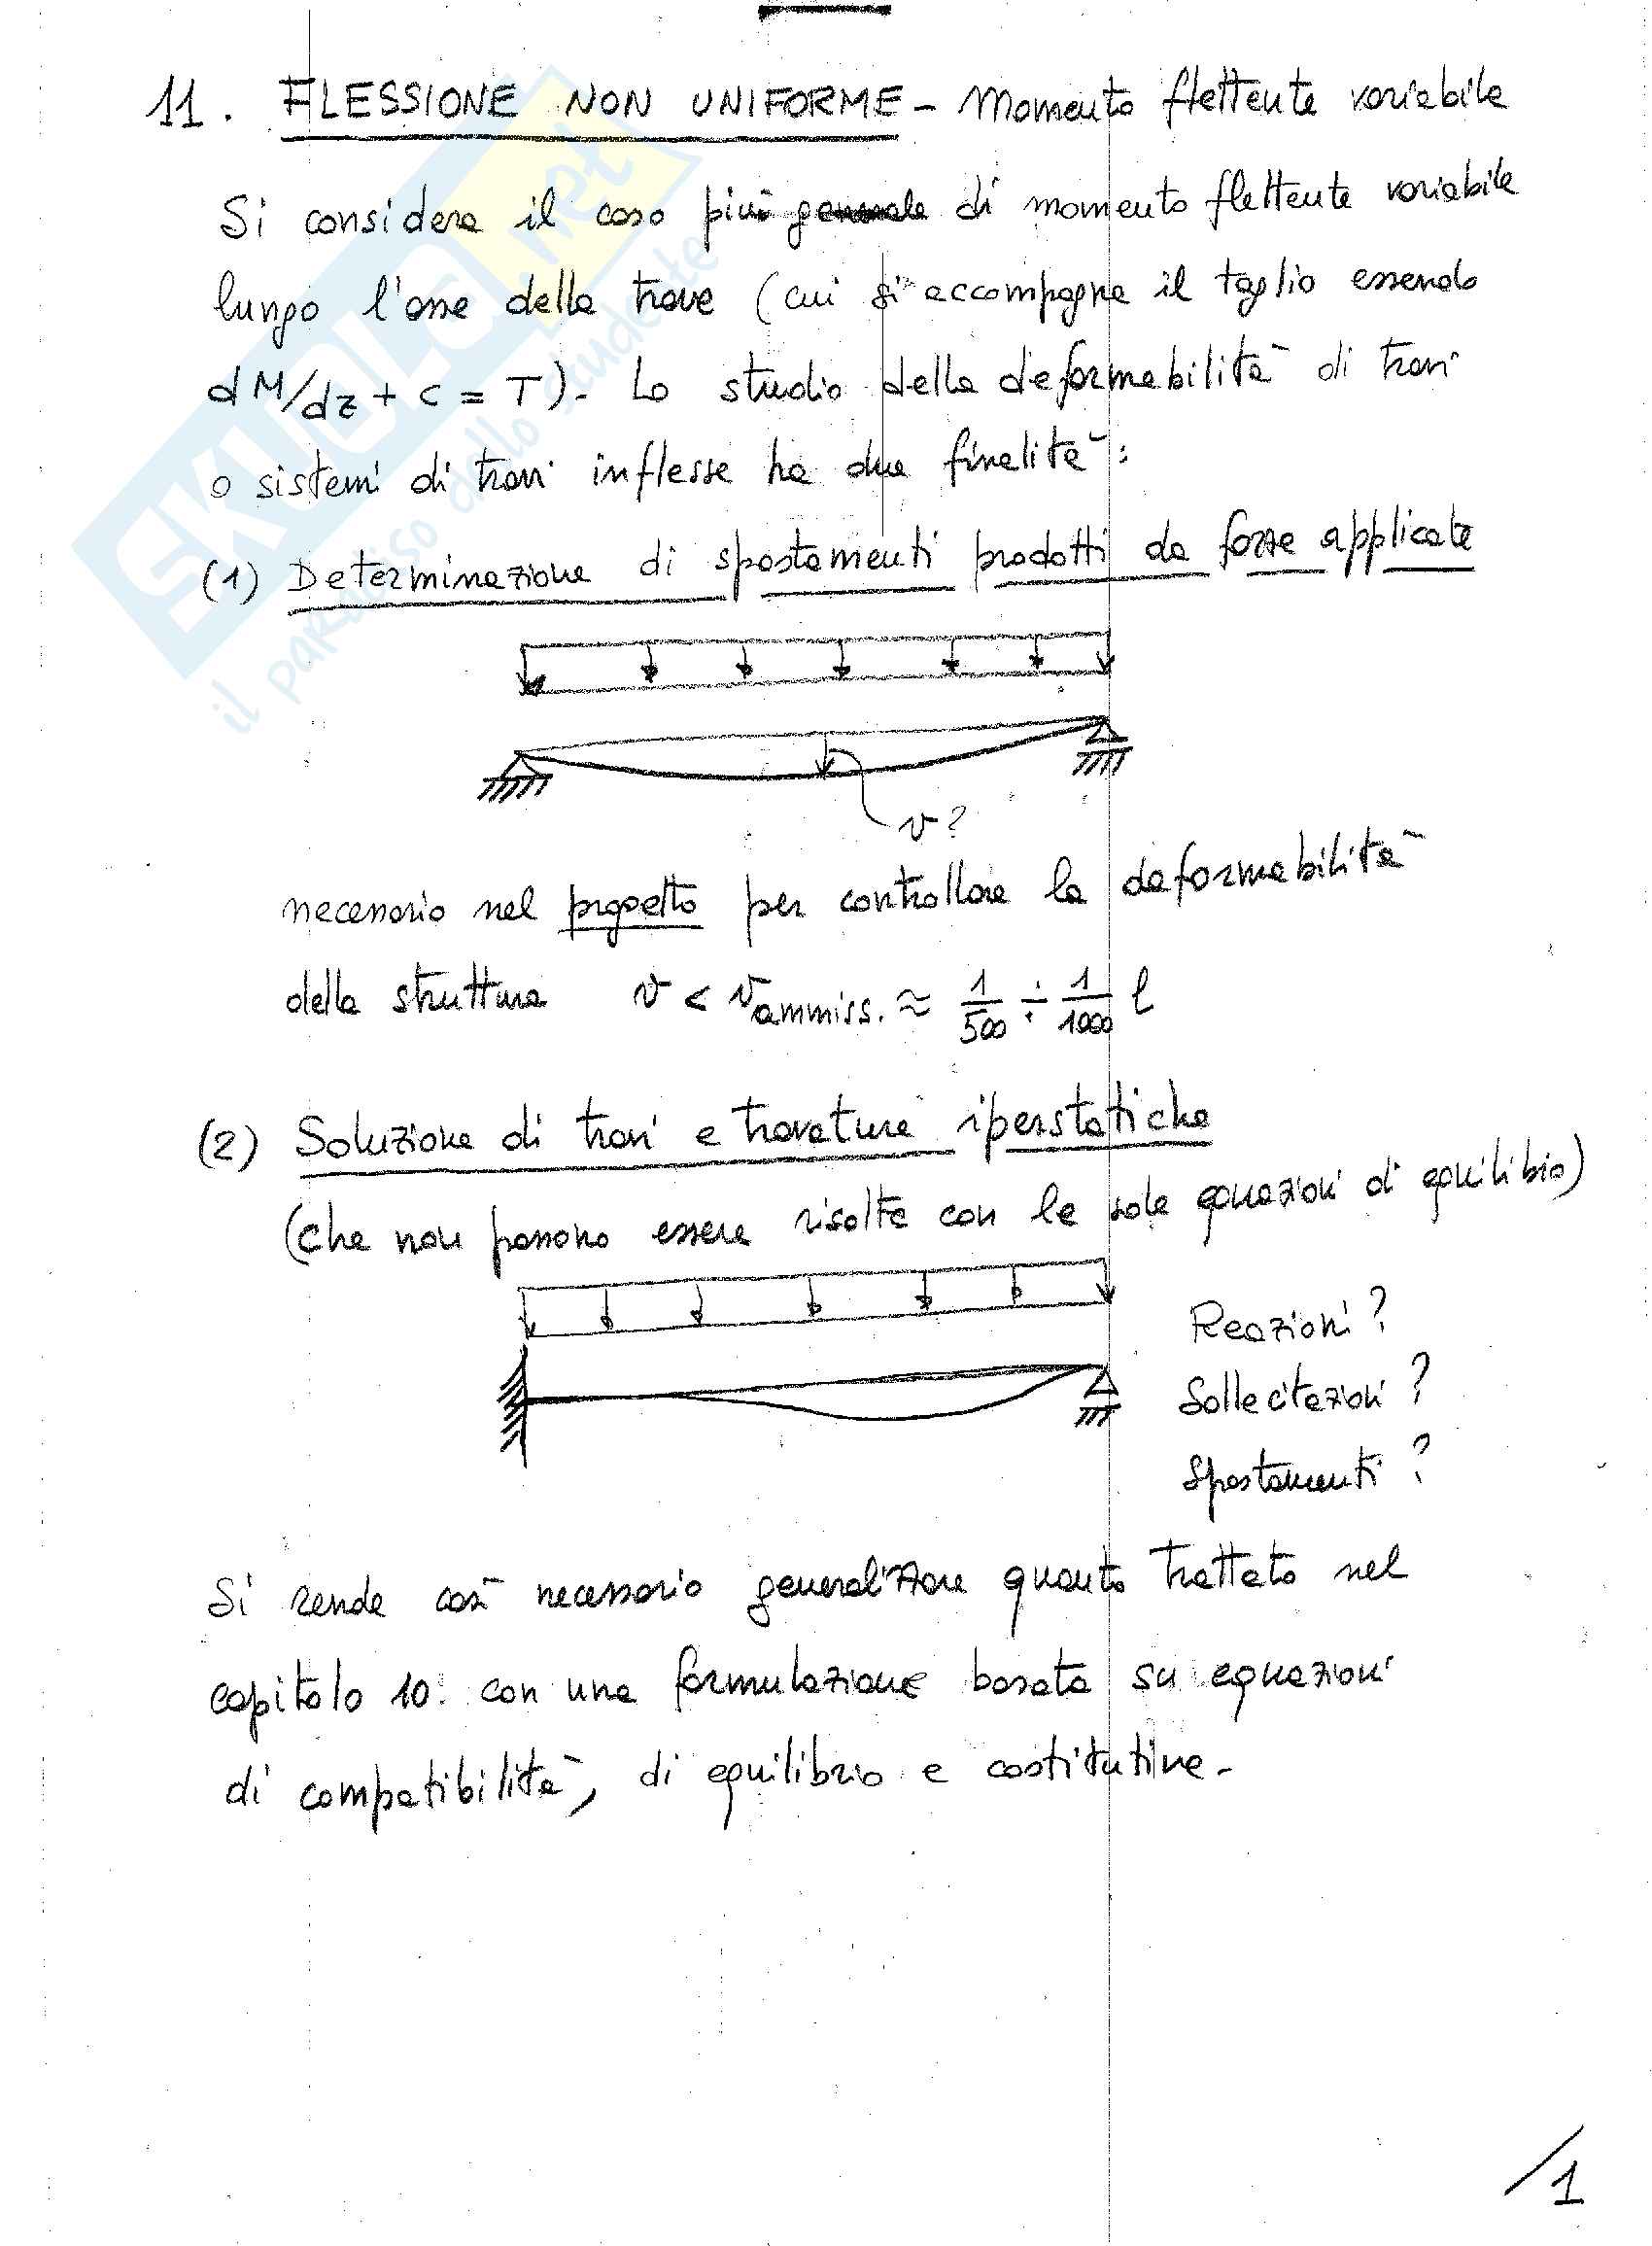 11. FLESSIONE NON UNIFORME - Momento flettente variabile
Si considera il caso più generale di momento flettente variabile
lungo l'asse della trave (cui si accompagna il taglio essendo
dM/dz + c = T). Lo studio della deformabilità di travi
o sistemi di travi inflesse ha due finalità:
(1) Determinazione di spostamenti prodotti da forze applicate
v?
necessario nel progetto per controllare la deformabilità
della struttura v < v ammiss. ≈ 1/500 ÷ 1/1000 l
(2) Soluzione di travi e travature iperstatiche
(che non possono essere risolte con le sole equazioni di equilibrio)
Reazioni?
Sollecitazioni?
Spostamenti?
Si rende così necessario generalizzare quanto trattato nel
capitolo 10. con una formulazione basata su equazioni
di compatibilità, di equilibrio e costitutive.
/1
SKUOLA.net
il paradiso dello studente